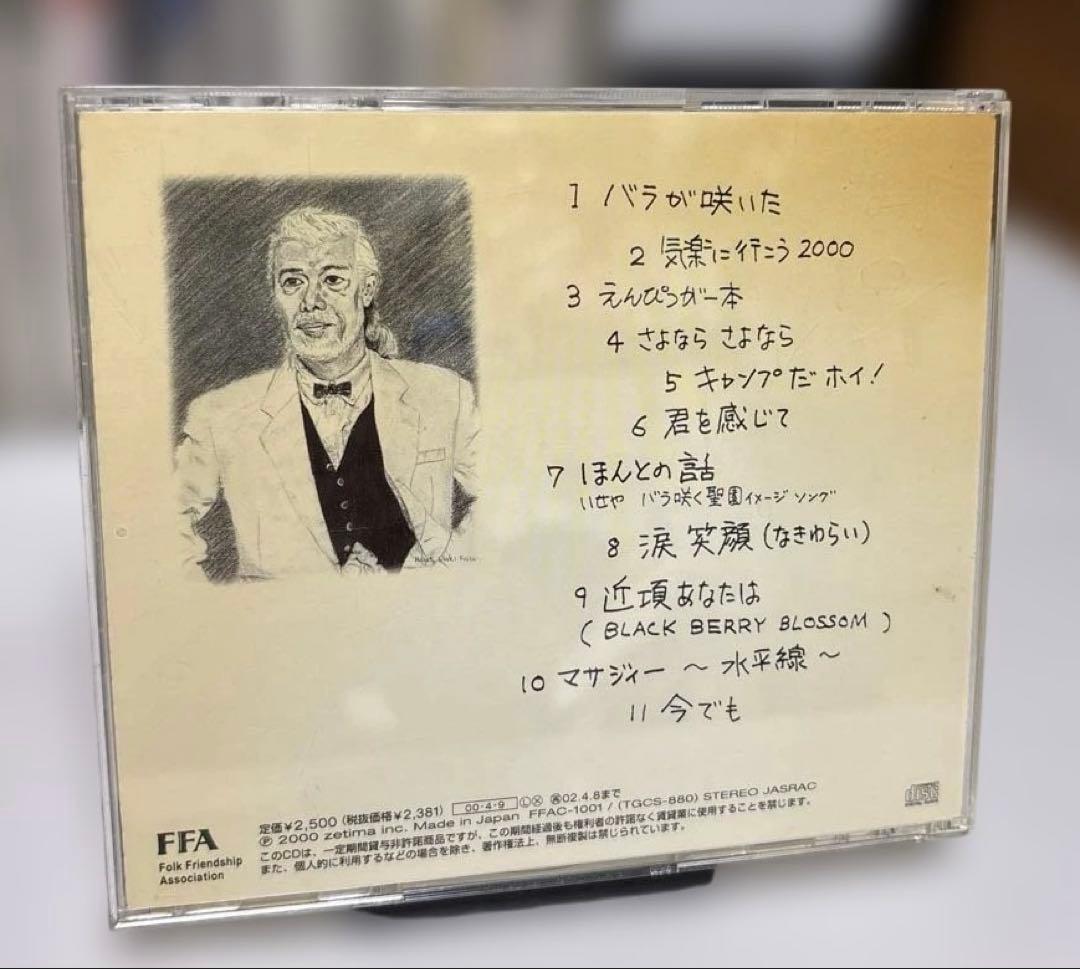 1 バラが咲いた
2 気楽に行こう 2000
3 えんぴつが一本
4 さよなら さよなら
5 キャンプだ ホイ!
6 君を感じて
7 ほんとの話
いせや バラ咲く聖園イメージソング
8 涙 笑顔(なきわらい)
9 近頃あなたは
(BLACK BERRY BLOSSOM)
10 マサジィー 〜 水平線 〜
11 今でも
FFA
Folk Friendship
Association
定価¥2,500(税抜価格¥2,381) 00・4・9 Ⓛ Ⓧ 再02.4.8まで
℗ 2000 zetima inc. Made in Japan FFAC-1001 / (TGCS-880) STEREO JASRAC
このCDは、一定期間貸与非許諾商品ですが、この期間経過後も権利者の許諾なく賃貸業に使用することを禁じます。
また、個人的に利用するなどの場合を除き、著作権法上、無断複製は禁じられています。
disc